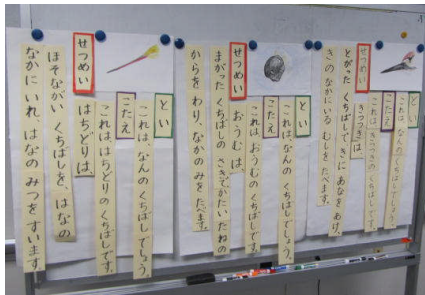 とい
これは、なんのくちばしでしょう。
こたえ
これは、きつつきのくちばしです。
せつめい
きつつきは、
とがったくちばしできにあなをあけ、
きのなかにいるむしをたべます。
とい
これは、なんのくちばしでしょう。
こたえ
これはおうむのくちばしです。
せつめい
おうむは、
まがったくちばしのさきでかたいたねの
からをわり、なかのみをたべます。
とい
これは、なんのくちばしでしょう
こたえ
これははちどりのくちばしです。
せつめい
はちどりは、
ほそながいくちばしを、はなの
なかにいれ、はなのみつをすいます。